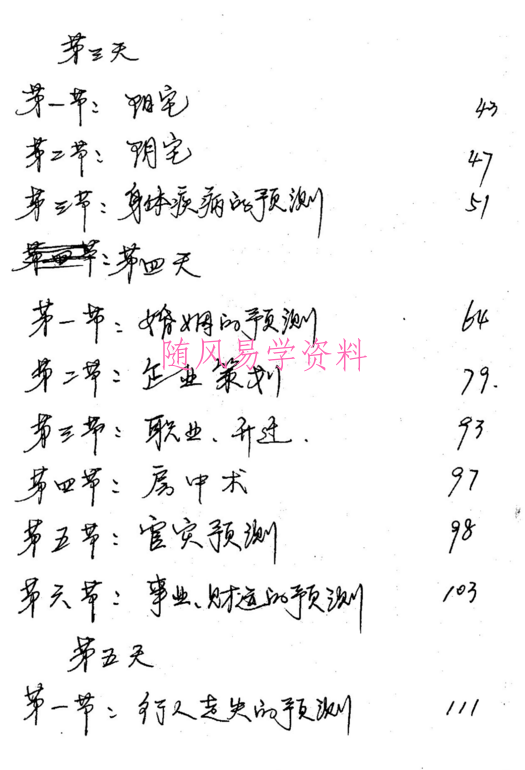 第三天
第一节: 阳宅 43
第二节: 阴宅 47
第三节: 身体疾病的预测 51
第四天
第一节: 婚姻的预测 64
随风易学资料
第二节: 企业策划 79.
第三节: 职业、升迁. 93
第四节: 房中术 97
第五节: 官灾预测 98
第六节: 事业、财运的预测 103
第五天
第一节: 行人走失的预测 111